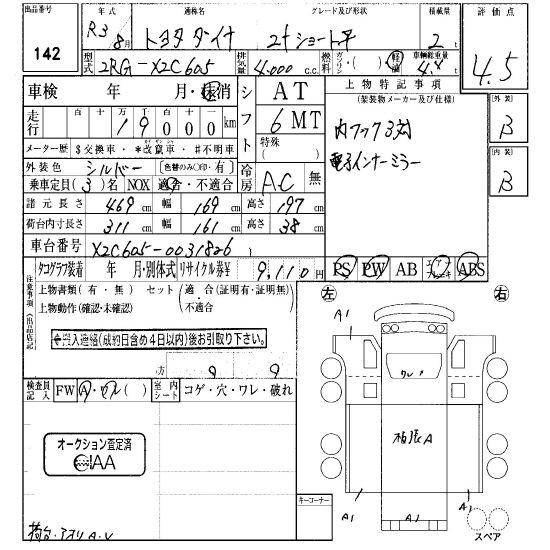 出品番号
142
年式
R3 8月
通称名
トヨタ ダイナ
グレード及び形状
2t ショート平
積載量
2t
評価点
4.5
型式
2RG-X2C605
排気量
4.000 c.c.
燃料
ガソリン・( )・軽油
車輌総重量
4.8t
車検 年 月・抹消
シフト
AT
6 MT
特殊( )
上物特記事項
(架装物メーカー及び仕様)
内フック3対
電子インナーミラー
外装
B
内装
B
走行
十 万 千 百 十
19000km
メーター歴
$交換車・*改竄車・#不明車
外装色
シルバー
[色替のみ○印・有]
乗車定員(3)名
NOX
適合・不適合
冷房
AC
無
諸元長さ 469cm 幅 169cm 高さ 197cm
荷台内寸長さ 311cm 幅 161cm 高さ 38cm
車台番号
X2C605-0031826
PS PW AB エアサス ABS
タコグラフ装着 年 月・別体式
リサイクル券¥
9,110円
注意事項(出品店記
上物書類(有・無) セット(適合(証明有・証明無)
上物動作(確認・未確認) ・不適合)
入連絡(成約日含め4日以内)後お引取り下さい。
検査員記入
FW
A・アル( )
室内シート
コゲ・穴・ワレ・破れ
オークション査定済
IAA
荷台・アオリA.V
キーコーナー
左
右
A1
ワレ
A
A1
A1
A1
スペア